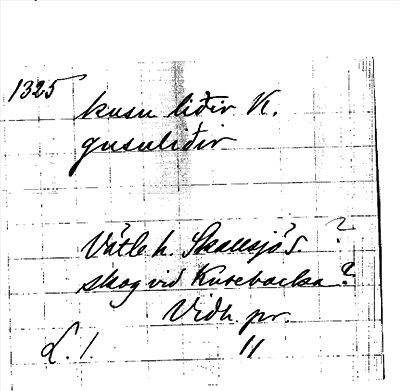 1325
kusu liðir K.
gusuliðir
Vätle h. Skallsjö s. ?
skog vid Kusebacka ?
Vidh. pr.
L. 1. 11